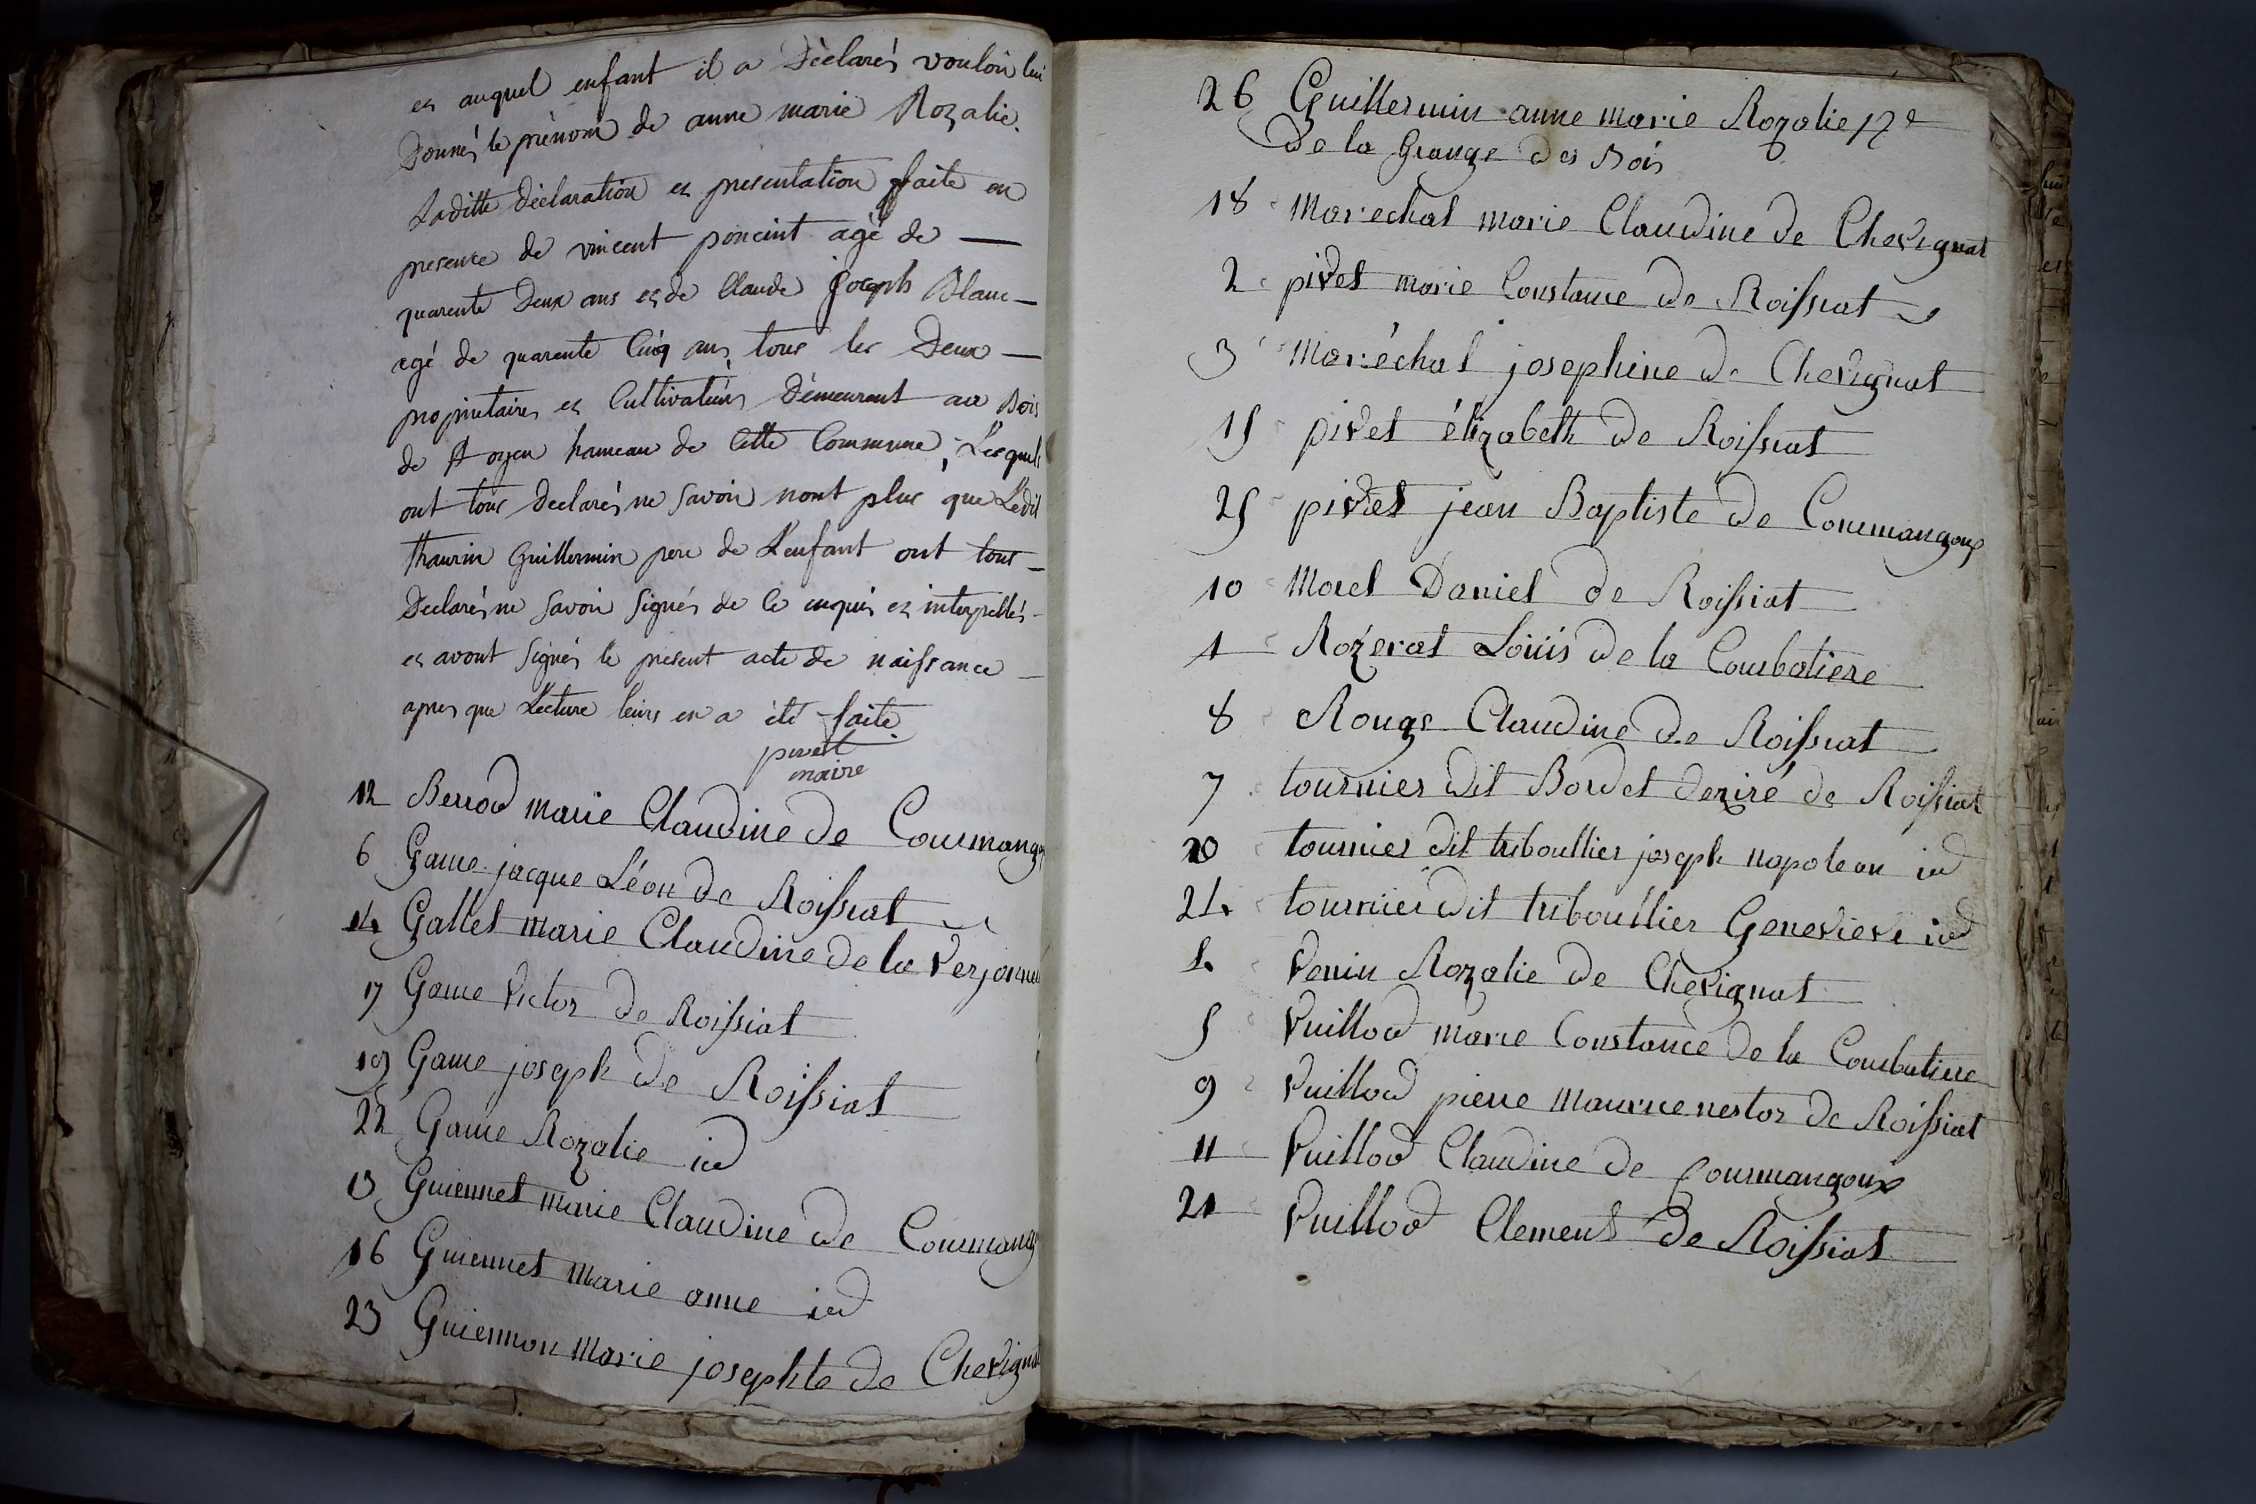 et auquel enfant il a Déclarés vouloir lui
Donnés le prénom de anne marie Rozalie.
Laditte déclaration et presentation faite en
presence de vincent poncint agé de —
quarente Deux ans et de Claude joseph Blanc —
agé de quarente Cinq ans, tous les Deux —
propriétaires et Cultivateurs Démeurant au Bois
de hameau de Cette Commune, Lesquels
ont tous declarés ne savoir nont plus que Ledit
thaurin Guillermin pere de L'enfant ont tous —
Declarés ne savoir signés de ce enquis et interpellés —
et avont signés le present acte de naissance —
apres que Lecture leurs en a été faite.
pivet
maire
12 Berrod marie Claudine de Courmango
6 Game jacque Léon de Roissiat
14 Gallet marie Claudine de la Verjonne
17 Game Victor de Roissiat
19 Game joseph de Roissiat
22 Game Rozalie id
13 Guiennet marie Claudine de Courmang
16 Guiennet marie anne id
23 Guiennon marie josephte de Chevigna
26 Guillermin anne marie Rozalie
de la Grange des Bois
18 Marechal marie Claudine de Chevignat
2 pivet marie Constance de Roissiat
3 Maréchal josephine de Chevignat
15 pivet élizabeth de Roissiat
25 pivet jean Baptiste de Courmangoux
10 Morel Daniel de Roissiat
1 Rozerat Louis de la Courbatiere
8 Rouge Claudine de Roissiat
7 tournier dit Bordet deziré de Roissiat
20 tournier dit triboullier joseph napoleon id
24 tournier dit triboullier Genevieve id
4 Venin Rozalie de Chevignat
5 Vuillod marie Constance de la Courbatiere
9 Vuillod pierre maurice nestor de Roissiat
11 Vuillod Claudine de Courmangoux
21 Vuillod Clement de Roissiat